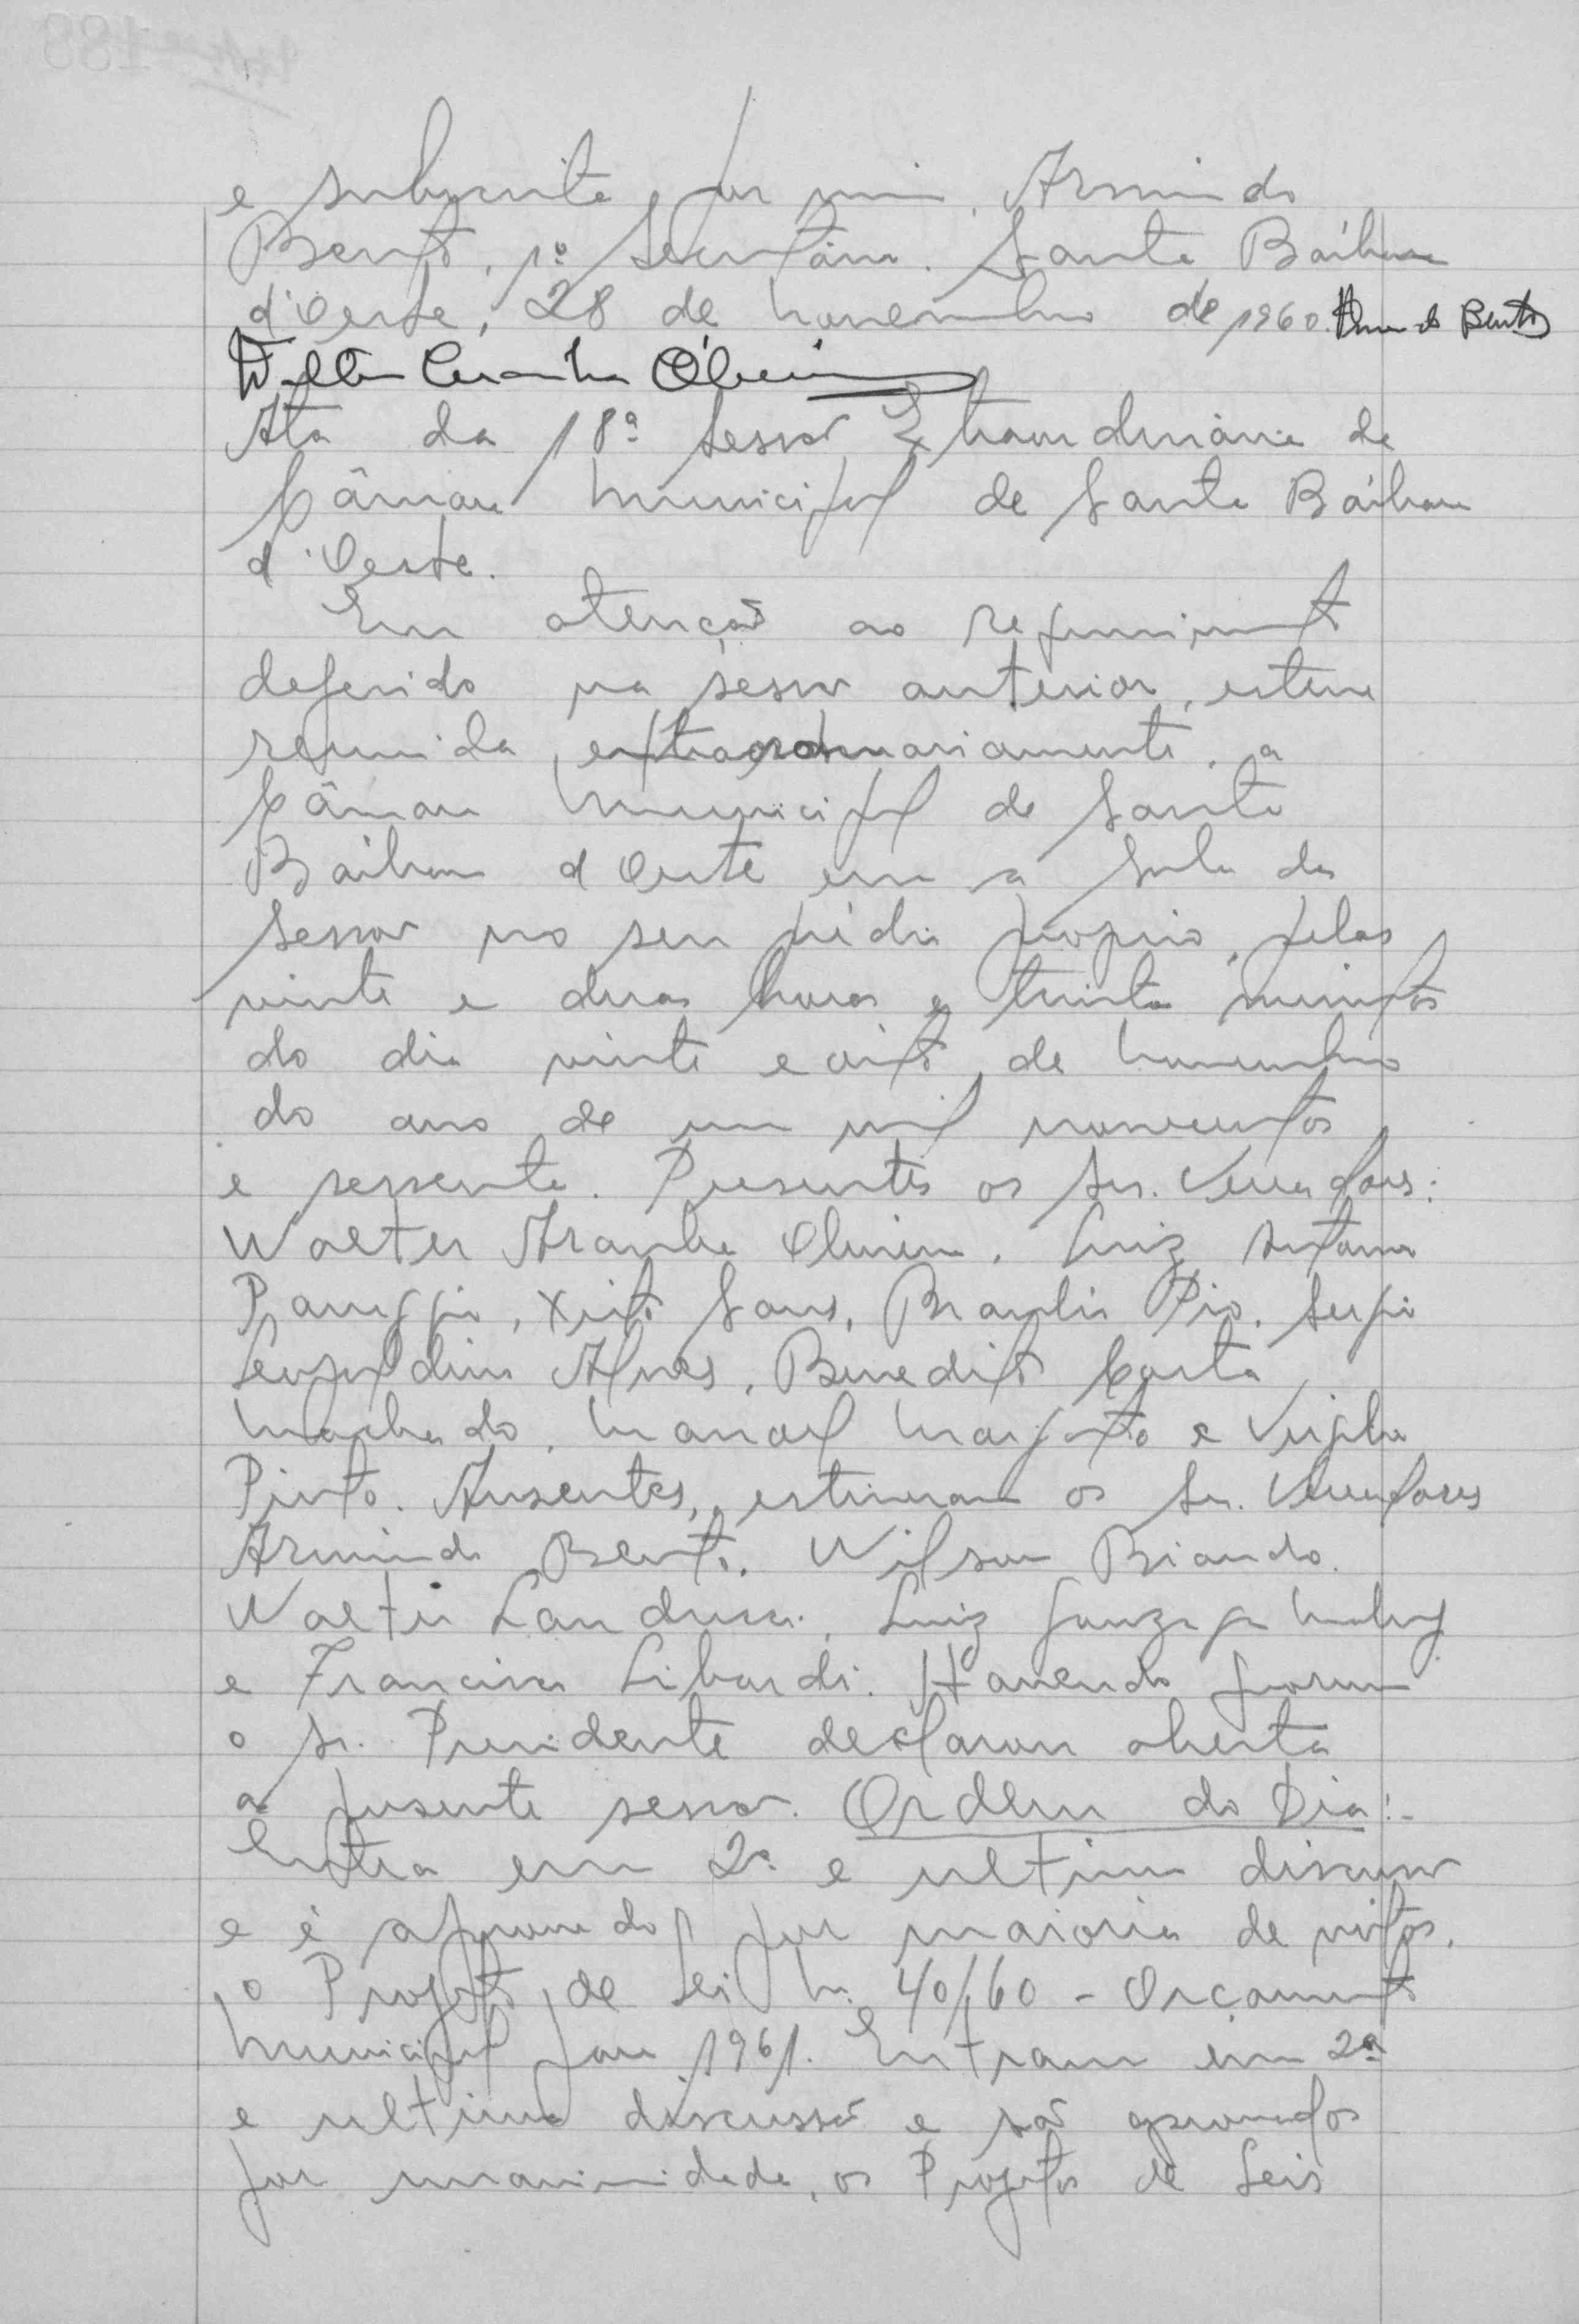 e subscrita por mim, Armindo
Bento, 1º Secretário. Santa Bárbara
d'Oeste, 28 de novembro de 1960. Armindo Bento
Walter Aranha Oliveira
Ata da 18ª sessão Extraordinária da
Câmara Municipal de Santa Bárbara
d'Oeste.
Em atenção ao requerimento
deferido na sessão anterior, esteve
reunida, extraordinariamente, a
Câmara Municipal de Santa
Bárbara d'Oeste em a sala da
sessão no seu prédio proprio, pelas
vinte e duas horas e trinta minutos
do dia vinte e oito de novembro
do ano de um mil novecentos
e sessenta. Presentes os srs. Vereadores:
Walter Aranha Oliveira, Luiz Antonio
Panaggio, Xisto Sans, Braulio Pio, Sergio
Leopoldino Alves, Benedito Costa
Machado, Manoel e Virgilio
Pinto. Ausentes, estiveram os srs. Vereadores
Armindo Bento, Wilson
Walter Landucci, Luiz Gonzaga
e Francisco Libardi. Havendo quorum
o sr. Presidente declarou aberta
a presente sessão. Ordem do Dia:-
Entra em 2ª e ultima discussão
e é aprovado por maioria de votos,
o Projeto de Lei n. 40/60 - Orçamento
Municipal para 1961. Entram em 2ª
e ultima discussão e são aprovados
por unanimidade, os Projetos de Leis